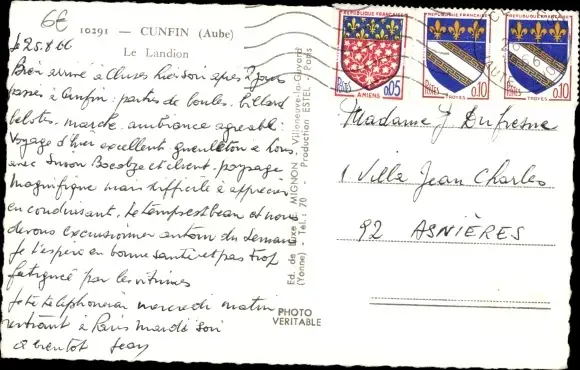 6€
10291 — CUNFIN (Aube)
Le Landion
le 25.8.66
Bien arrivé à hier soir après 2 jours
passés à Cunfin. parties de boules. billard
belotes. marche. ambiance agréable.
Voyage d'hier excellent gueuleton à
avec Simon et client. paysage
magnifique mais difficile à apprécier
en conduisant. Le temps est beau et nous
devons excursionner autour du
Je t'espère en bonne santé et pas trop
fatiguée par les vitrines
Je te téléphonerai mercredi matin
rentrant à Paris mardi soir
à bientôt Jean
Ed. de Luxe MIGNON - Villeneuve-la-Guyard
(Yonne) - Tel.: 70 Production ESTEL - Paris
PHOTO
VERITABLE
REPUBLIQUE FRANCAISE
POSTES
0,05
AMIENS
REPUBLIQUE FRANCAISE
POSTES
0,10
TROYES
REPUBLIQUE FRANCAISE
POSTES
0,10
TROYES
Madame J. Dufresne
1 Villa Jean Charles
92 ASNIÈRES